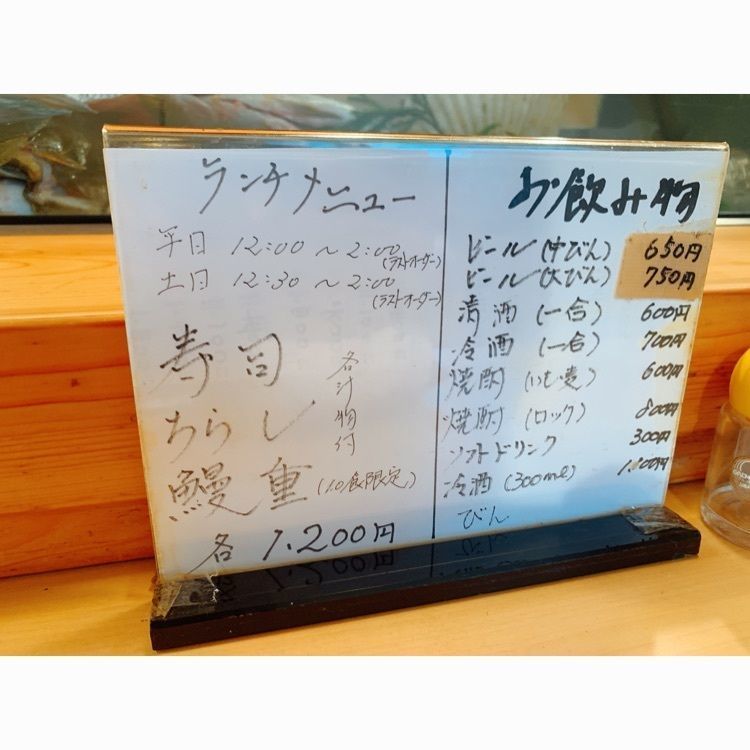 ランチメニュー
平日 12:00 〜 2:00 (ラストオーダー)
土日 12:30 〜 2:00 (ラストオーダー)
寿司
ちらし
鰻重 (10食限定)
各汁物付
各 1.200円
お飲み物
ビール (中びん) 650円
ビール (大びん) 750円
清酒 (一合) 600円
冷酒 (一合) 700円
焼酎 (いも麦) 600円
焼酎 (ロック) 800円
ソフトドリンク 300円
冷酒 (300ml) 1.100円
びん